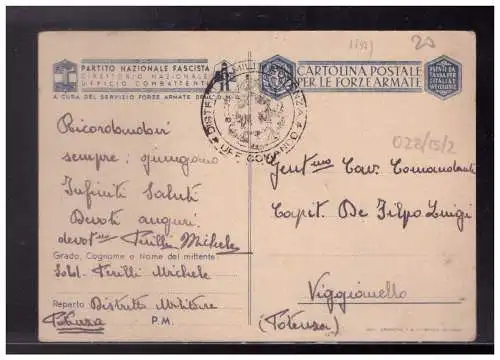 PARTITO NAZIONALE FASCISTA
DIRETTORIO NAZIONALE
UFFICIO COMBATTENTI
A CURA DEL SERVIZIO FORZE ARMATE DEL
CARTOLINA POSTALE
PER LE FORZE ARMATE
ESENTE DA
TASSA PER
L'ITALIA E
20
022/15/2
Ricordandovi
sempre: giungano
Infiniti Saluti
Devoti auguri.
Perilli Michele
Grado, Cognome e Nome del mittente
Sold. Perilli Michele
Reparto Distretto Militare
Potenza P. M.
Cav. Comandante
Capit. De Filpo Luigi
Viggianello
(Potenza)